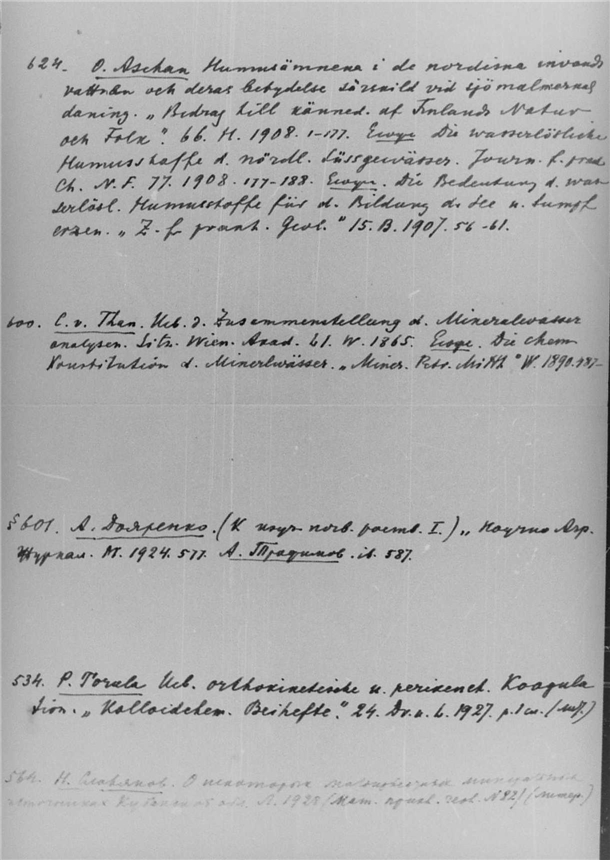 624. O. Aschan Humusämnena i de nordiska invands
vattnen och deras betydelse särskild vid sjömalmernas
daning. „Bidrag till känned. af Finlands Natur
och Folk". 66. H. 1908. 1-177. Ejusd. Die wasserlösliche
Humusstoffe d. nördl. Süssgewässer. Journ. f. prakt
Ch. N. F. 77. 1908. 177-188. Ejusd. Die Bedeutung d. was
serlösl. Humusstoffe für d. Bildung d. See u. Sumpf
erzen. „Z. f. prakt. Geol." 15. B. 1907. 56-61.
600. C. v. Than. Ueb. d. Zusammenstellung d. Mineralwasser
analysen. Sitz. Wien. Akad. 51. W. 1865. Ejusd. Die chem
Konstitution d. Minerlwässer. „Miner. Petr. Mitth" W. 1890. 487-
§601. А. Дояренко. (К изуч. почв. раств. I.) „Научно Агр.
Журнал. М. 1924. 577. А. Трофимов. ib. 587.
534. P. Torula Ueb. orthokinetische u. perikinet. Koagula
tion. „Kolloidchem. Beihefte". 24. Dr. u. L. 1927. p. 1 сл. (лит.)
564. Н. Славянов. О некоторых минеральных
источниках Кубанской обл. Л. 1928 (Мат. прикл. геол. N82) (литер.)